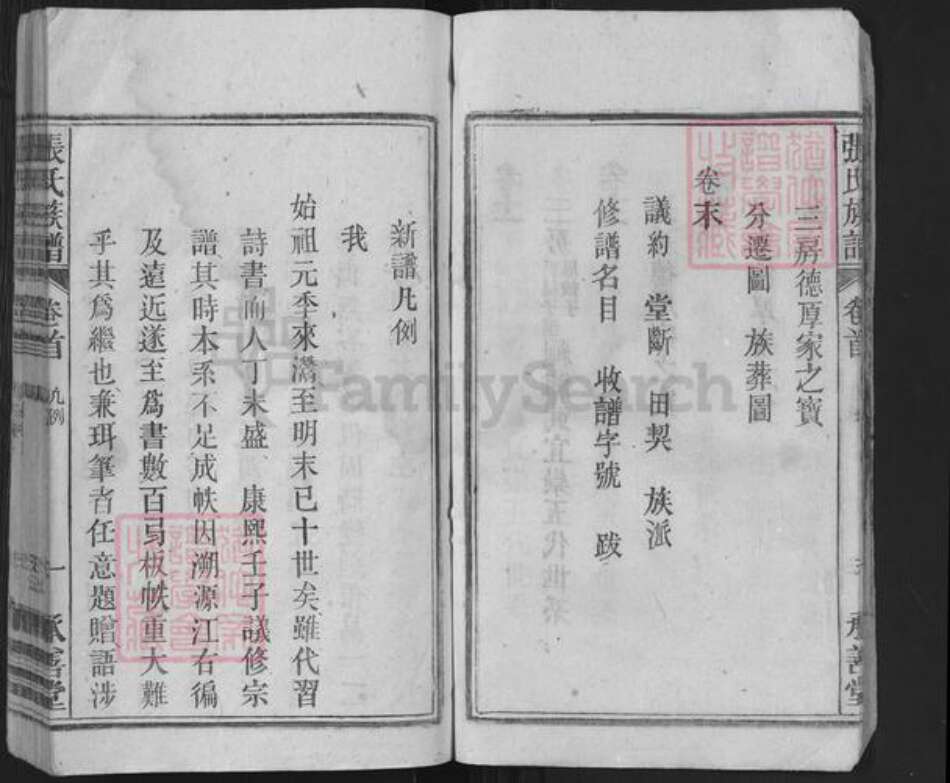 張氏族譜 卷首 承善堂
三房德厚家之寶
分遷圖 族葬圖
卷末
議約 堂斷 田契 族派
修譜名目 收譜字號 跋
新譜凡例
我
始祖元季來潛至明末已十世矣雖代習
詩書而人丁未盛 康熙壬子議修宗
譜其時本系不足成帙因溯源江右徧
及遠近遂至爲書數百頁板帙重大難
乎其爲繼也兼珥筆者任意題贈語涉
張氏族譜 卷首 凡例 一 承善堂
FamilySearch